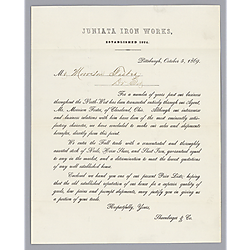 JUNIATA IRON WORKS,
ESTABLISHED 1824.
Pittsburgh, October 5, 1869.
M
For a number of years past our business
throughout the North-West has been transacted entirely through our Agent,
Mr. Morrison Foster, of Cleveland, Ohio. Although our intercourse
and business relations with him have been of the most eminently satis-
factory character, we have now concluded to make our sales and shipments
hereafter, directly from this point.
We enter the Fall trade with a concentrated and thoroughly
assorted stock of Nails, Horse Shoes, and Sheet Iron, guaranteed equal
to any in the market, and a determination to meet the lowest quotations
of any well established house.
Enclosed we hand you one of our present Price Lists; hoping
that the old established reputation of our house for a superior quality of
goods, low prices and prompt shipments, may justify you in giving us a
portion of your trade.
Respectfully, Yours,
Shoenberger & Co.